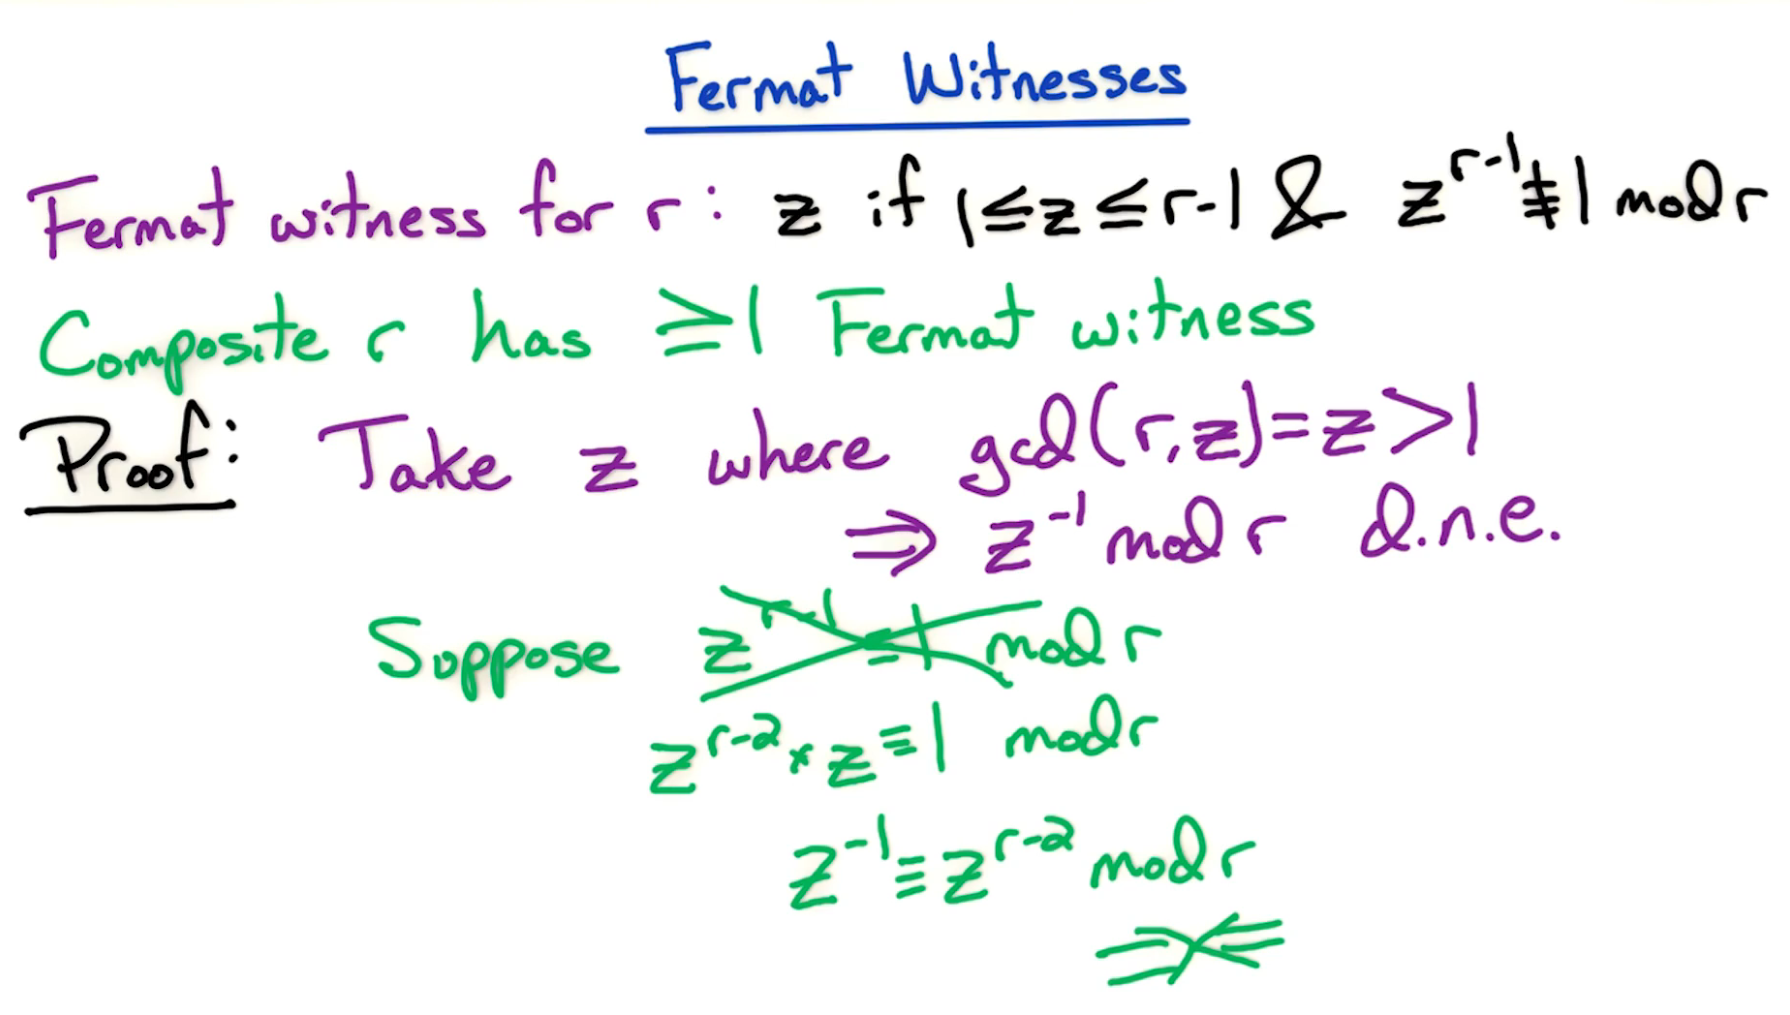 Fermat Witnesses
Fermat witness for r: z if 1≤z≤r-1 & z^{r-1}≢1 mod r
Composite r has ≥1 Fermat witness
Proof: Take z where gcd(r,z)=z>1
⇒ z^{-1} mod r d.n.e.
Suppose z^{r-1}≡1 mod r
z^{r-2}×z≡1 mod r
z^{-1}≡z^{r-2} mod r
⇒⇐